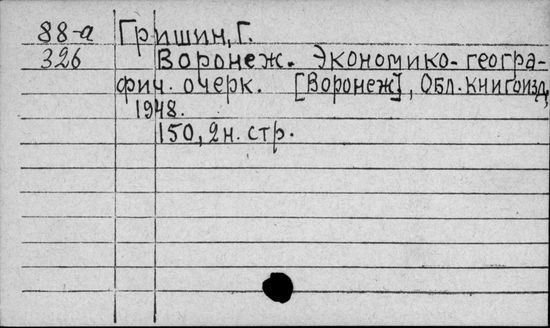 88-а Гришин, Г.
326 Воронеж. Экономико-геогра-
фич. очерк. [Воронеж], Обл. книгоизд,
1948.
150, 2 н. стр.